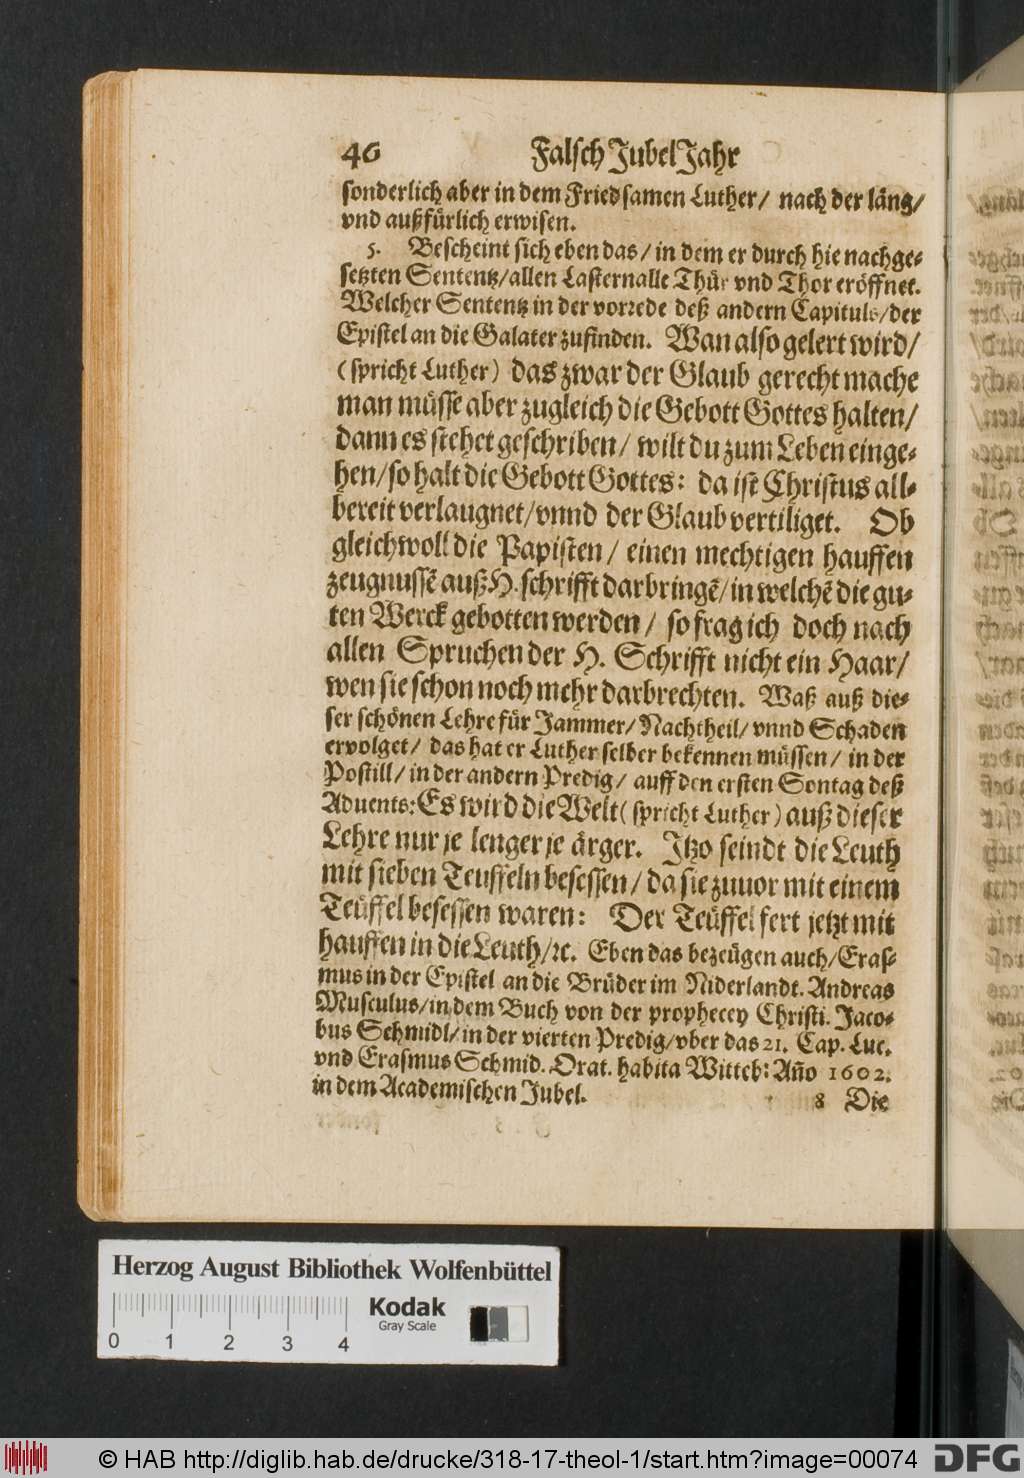 46 Falsch JubelJahr
sonderlich aber in dem Friedsamen Luther/ nach der läng/
vnd außfürlich erwisen.
5. Bescheint sich eben das/ in dem er durch hie nachge-
setzten Sententz/allen Lasternalle Thür vnd Thor eröffnet.
Welcher Sententz in der vorrede deß andern Capituls/der
Epistel an die Galater zufinden. Wan also gelert wird/
(spricht Luther) das zwar der Glaub gerecht mache
man müsse aber zugleich die Gebott Gottes halten/
dann es stehet geschriben/ wilt du zum Leben einge-
hen/so halt die Gebott Gottes: da ist Christus all-
bereit verlaugnet/vnnd der Glaub vertiliget. Ob
gleichwoll die Papisten/ einen mechtigen hauffen
zeugnussẽ auß H. schrifft darbringẽ/in welchẽ die gu-
ten Werck gebotten werden/ so frag ich doch nach
allen Spruchen der H. Schrifft nicht ein Haar/
wen sie schon noch mehr darbrechten. Waß auß die-
ser schönen Lehre für Jammer/ Nachtheil/ vnnd Schaden
ervolget/ das hat er Luther selber bekennen müssen/ in der
Postill/ in der andern Predig/ auff den ersten Sontag deß
Aduents: Es wird die Welt (spricht Luther) auß dieser
Lehre nur je lenger je ärger. Itzo seindt die Leuth
mit sieben Teuffeln besessen/ da sie zuuor mit einem
Teüffel besessen waren: Der Teüffel fert jetzt mit
hauffen in die Leuth/ꝛc. Eben das bezeügen auch/Eras-
mus in der Epistel an die Brüder im Niderlandt. Andreas
Musculus/in dem Buch von der prophecey Christi. Jaco-
bus Schmidl/in der vierten Predig/vber das 21. Cap. Luc.
vnd Erasmus Schmid. Orat. habita Witteb: Año 1602.
in dem Academischen Jubel.
8 Die
Herzog August Bibliothek Wolfenbüttel
Kodak
Gray Scale
0 1 2 3 4
© HAB http://diglib.hab.de/drucke/318-17-theol-1/start.htm?image=00074
DFG